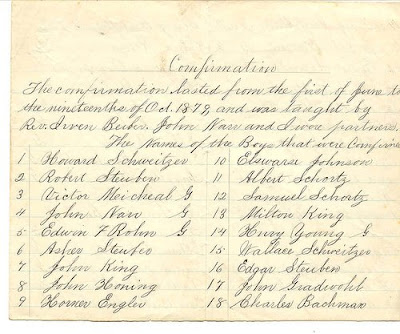 Confirmation
The confirmation lasted from the first of June to
the nineteenths of Oct. 1879 and was taught by
Rev. Irven Beiber. John Narr and I were partners.
The Names of the Boys that were Confirme
1 Howard Schweitzer 10 Elswarse Johnson
2 Robert Steuben 11 Albert Schortz
3 Victor Meicheal G 12 Samuel Schortz
4 John Narr G 13 Milton King
5 Edwin F Rohn G 14 Henry Young G
6 Asher Steuben 15 Wallace Schweitzer
7 John King 16 Edgar Steuben
8 John Honing 17 John Gradwohl
9 Horner Engler 18 Charles Bachman